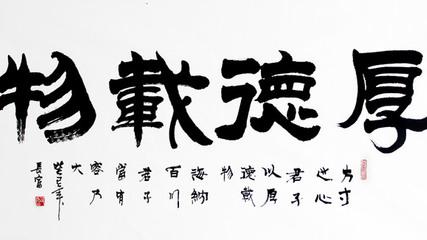 厚德載物
方寸
心
君子
以厚
德載
物
海納
百川
君子
當有
容乃
大
癸巳年
長富